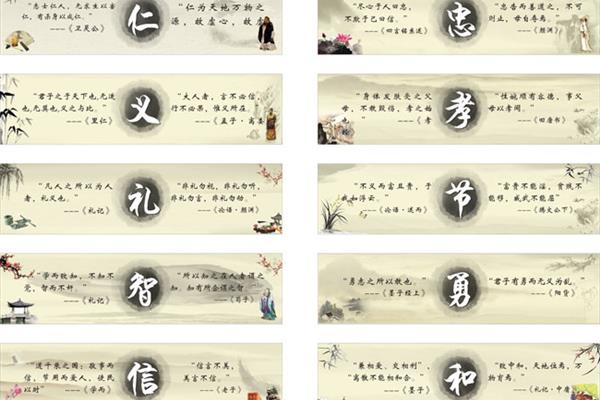 “志士仁人，无求生以害
仁，有杀身以成仁。”
---《卫灵公》
仁
“仁为天地万物之
源，故虚心，故虚
“尽心于人曰忠，
不欺于己曰信。”
---《四言铭系述》
忠
“忠告而善道之，不可
则止，毋自辱焉。”
---《颜渊》
“君子之于天下也,无适
也,无莫也,义之与比。”
---《里仁》
义
“大人者，言不必信，
行不必果，惟义所在。”
---《孟子·离娄
“身体发肤受之父
母，不敢毁伤，孝之始
---《孝
孝
“性姚顺有容德，事父
母以孝闻。”
---《旧唐书》
“凡人之所以为人
者，礼义也。”
---《礼记》
礼
“非礼勿视，非礼勿听，
非礼勿言，非礼勿动。”
---《论语·颜渊》
“不义而富且贵，于
我如浮云。”
---《论语·述而》
节
“富贵不能淫，贫贱不
能移，威武不能屈”
---《滕文公下》
“学而致知，不知不
觉，智而不奸。”
---《礼记》
智
“所以知之在人者谓之
知，知有所合谓之智”
---《荀子》
“勇志之所以敢也。”
---《墨子经上》
勇
“君子有勇而无义为乱。”
---《阳货》
“道千乘之国：敬事而
信，节用而爱人，使民
以时”
---《学而》
信
“信言不美，
美言不信。”
---《老子》
“兼相爱、交相利”
“离散不能相和合。”
---《墨子》
和
“致中和，天地位焉，万
物育焉。”
---《礼记·中庸